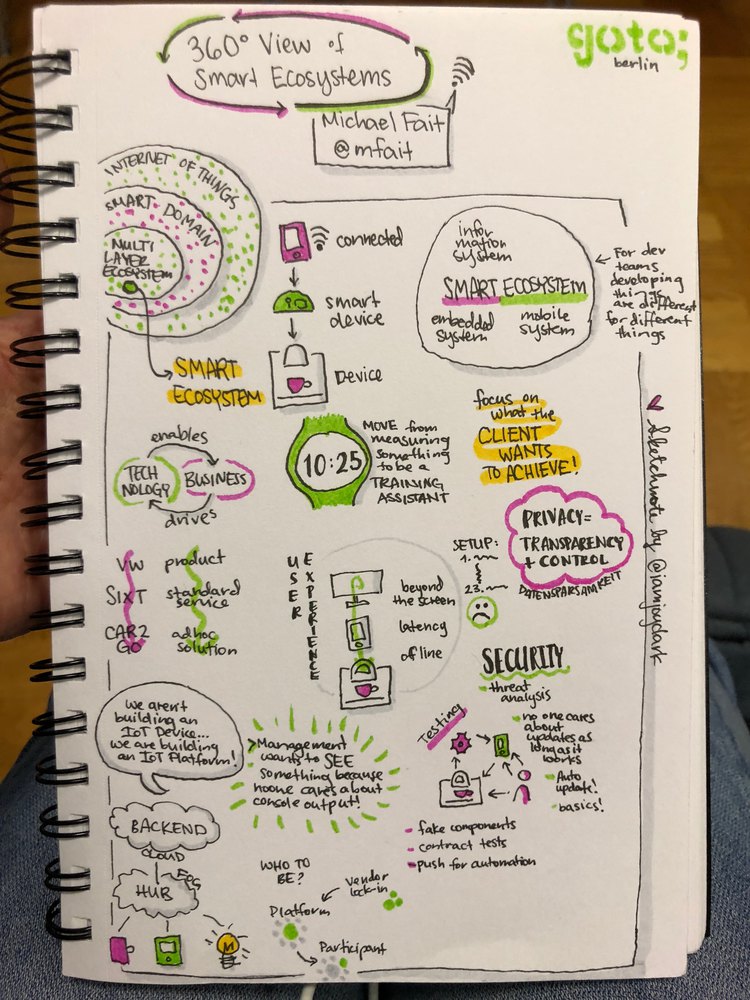 360° View of
Smart Ecosystems
goto;
berlin
Michael Fait
@mfait
INTERNET OF THINGS
SMART DOMAIN
MULTI
LAYER
ECOSYSTEM
SMART
ECOSYSTEM
connected
smart
device
Device
infor
mation
system
SMART ECOSYSTEM
embedded
system
mobile
system
For dev
teams
developing
things
are different
for different
things
enables
TECH
NOLOGY
BUSINESS
drives
10:25
MOVE from
measuring
something
to be a
TRAINING
ASSISTANT
focus on
what the
CLIENT
WANTS
TO ACHIEVE!
PRIVACY=
TRANSPARENCY
+ CONTROL
DATENSPARSAMKEIT
SETUP:
1.
23.
VW product
SIXT standard
service
CAR2
GO
adhoc
solution
USER
EXPERIENCE
beyond
the screen
latency
ofline
SECURITY
threat
analysis
no one cares
about
updates as
long as it
works
Auto
update!
basics!
Testing
fake components
contract tests
push for automation
we aren't
building an
IoT Device...
we are building
an IoT Platform!
Management
wants to SEE
something because
noone cares about
console output!
BACKEND
CLOUD
HUB
FOG
WHO TO
BE?
vendor
lock-in
Platform
Participant
Sketchnote by @iamjoyclark